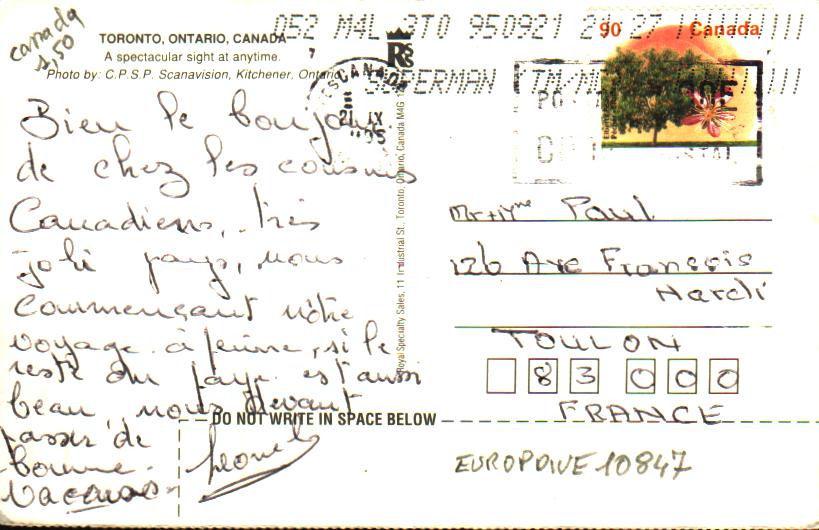 canada
1,50
TORONTO, ONTARIO, CANADA
A spectacular sight at anytime.
Photo by: C.P.S.P. Scanavision, Kitchener, Ontario
052 M4L 3T0 950921 21 27
90 Canada
CANADA
21 IX
95
Bien le bonjour
de chez les cousins
Canadiens, très
joli pays, nous
commençant nôtre
voyage à peine, si le
reste du pays est aussi
beau nous devont
passer de
bonne
vacances
Royal Specialty Sales, 11 Industrial St. Toronto, Ontario, Canada M4G
Mr + Mme Paul
126 Ave François
Hardi
TOULON
83 000
FRANCE
DO NOT WRITE IN SPACE BELOW
EUROPOIVE 10847